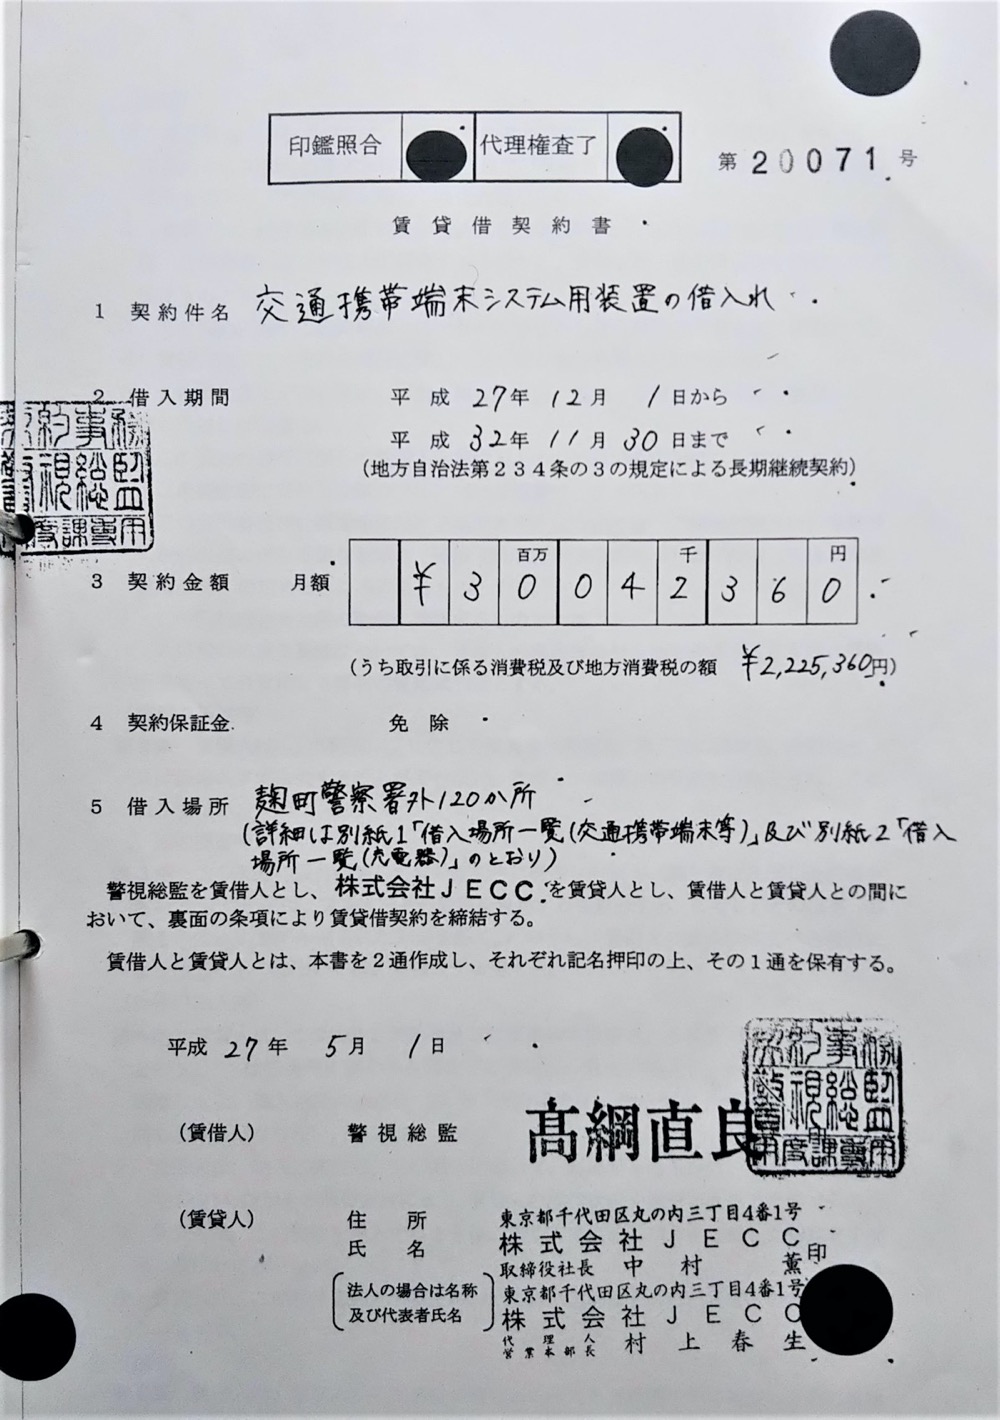 印鑑照合 代理権査了
第20071号
賃貸借契約書
1 契約件名 交通携帯端末システム用装置の借入れ
2 借入期間 平成27年12月1日から
平成32年11月30日まで
(地方自治法第234条の3の規定による長期継続契約)
百万 千 円
3 契約金額 月額 ¥30042360
(うち取引に係る消費税及び地方消費税の額 ¥2,225,360円)
4 契約保証金 免除
5 借入場所 麹町警察署外120か所
(詳細は別紙1「借入場所一覧(交通携帯端末等)」及び別紙2「借入
場所一覧(充電器)」のとおり)
警視総監を賃借人とし、株式会社JECCを賃貸人とし、賃借人と賃貸人との間に
おいて、裏面の条項により賃貸借契約を締結する。
賃借人と賃貸人とは、本書を2通作成し、それぞれ記名押印の上、その1通を保有する。
平成27年5月1日
(賃借人) 警視総監 髙綱直良
(賃貸人) 住所 東京都千代田区丸の内三丁目4番1号
氏名 株式会社JECC
取締役社長 中村 薫 印
法人の場合は名称 東京都千代田区丸の内三丁目4番1号
及び代表者氏名 株式会社JECC
代理人
営業本部長 村上春生